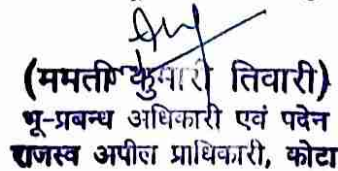 (ममती कुमारी तिवारी)
भू-प्रबन्ध अधिकारी एवं पदेन
राजस्व अपील प्राधिकारी, कोटा